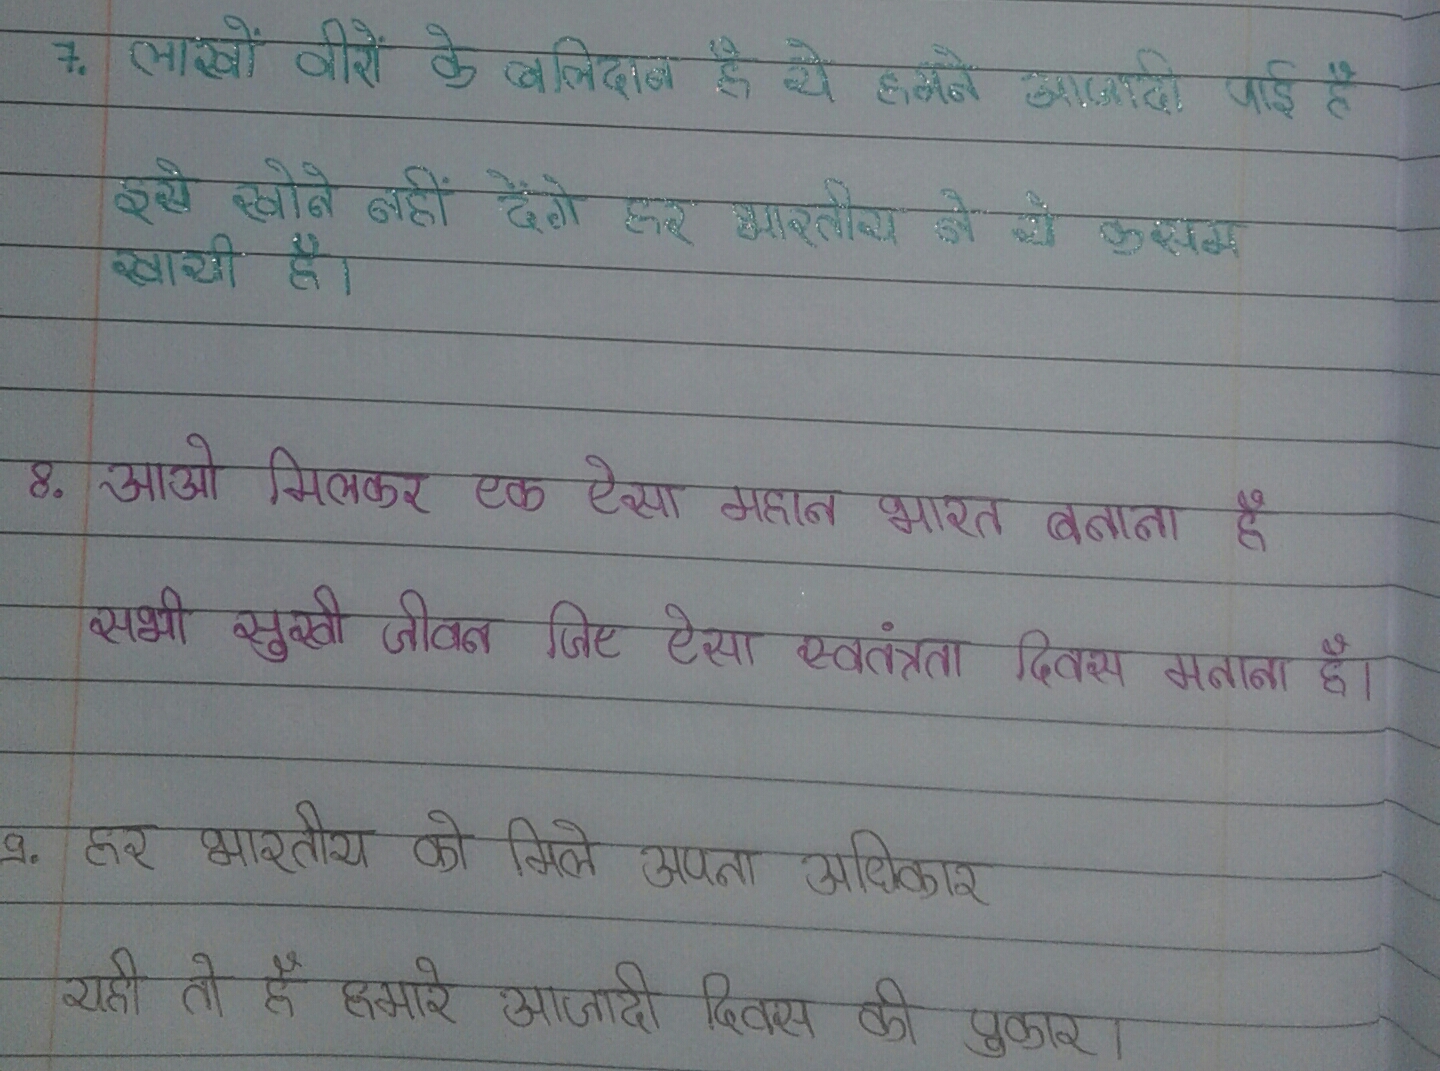 7. लाखों वीरों के बलिदान है ये हमने आजादी पाई है
इसे खोने नहीं देंगे हर भारतीय ने ये कसम
खायी है।
8. आओ मिलकर एक ऐसा महान भारत बनाना है
सभी सुखी जीवन जिए ऐसा स्वतंत्रता दिवस मनाना है।
9. हर भारतीय को मिले अपना अधिकार
यही तो है हमारे आजादी दिवस की पुकार।